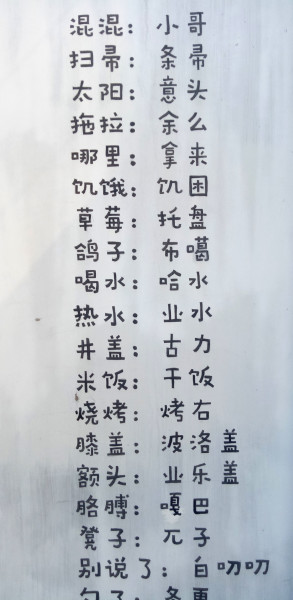 混混：小哥
扫帚：条帚
太阳：意头
拖拉：余么
哪里：拿来
饥饿：饥困
草莓：托盘
鸽子：布噶
喝水：哈水
热水：业水
井盖：古力
米饭：干饭
烧烤：烤右
膝盖：波洛盖
额头：业乐盖
胳膊：嘎巴
凳子：兀子
别说了：白叨叨
勺子：